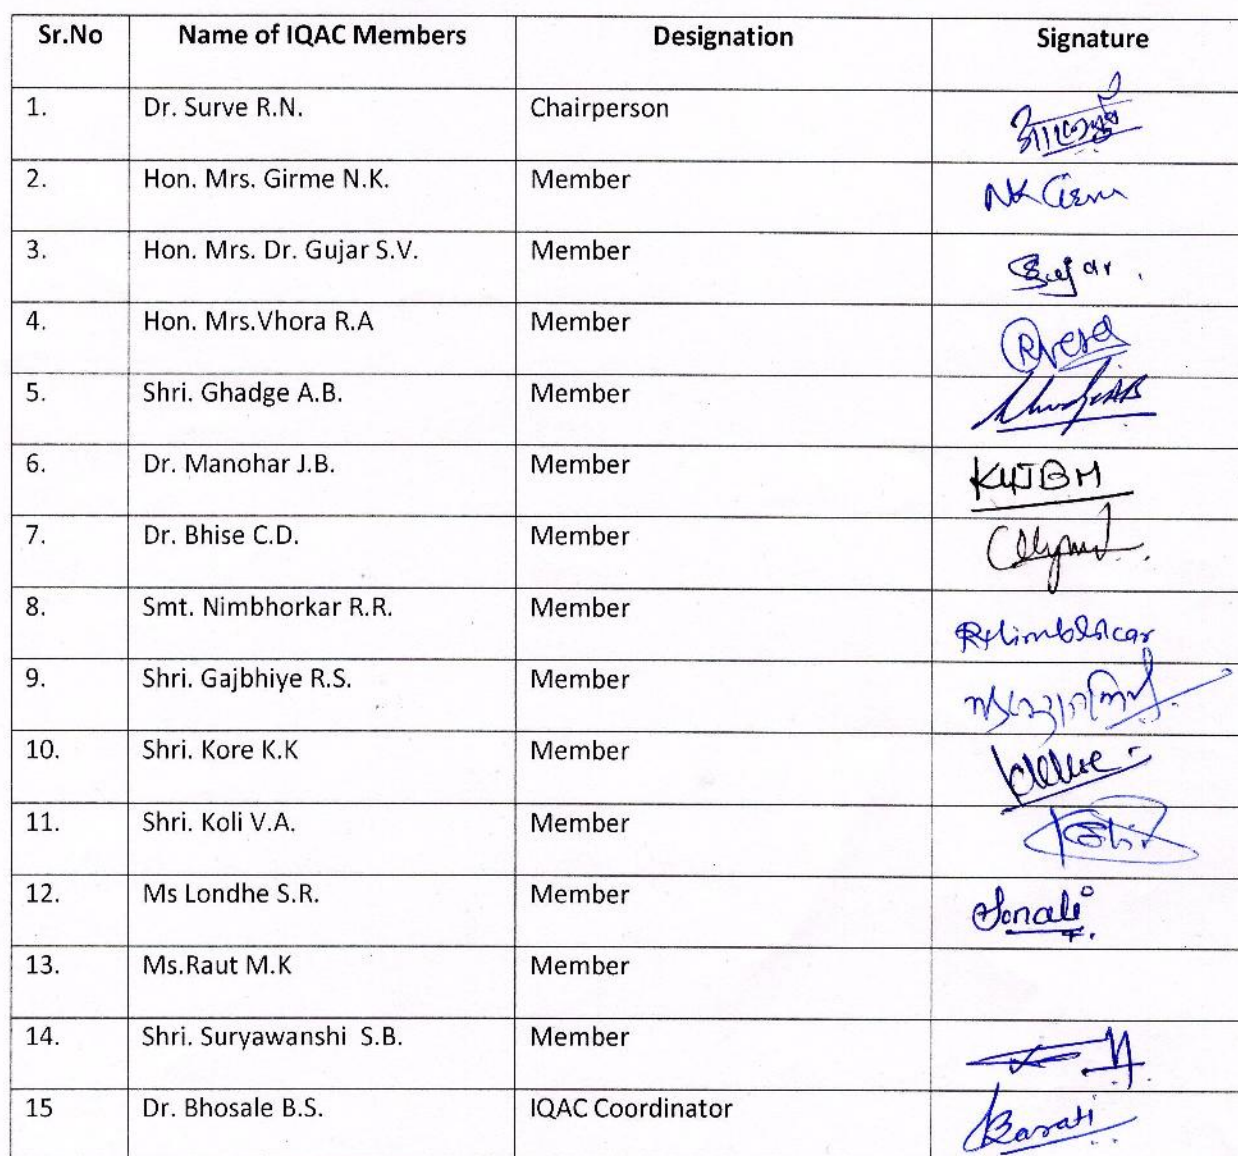 Sr.No Name of IQAC Members Designation Signature
1. Dr. Surve R.N. Chairperson
2. Hon. Mrs. Girme N.K. Member
3. Hon. Mrs. Dr. Gujar S.V. Member Gujar
4. Hon. Mrs.Vhora R.A Member
5. Shri. Ghadge A.B. Member
6. Dr. Manohar J.B. Member
7. Dr. Bhise C.D. Member
8. Smt. Nimbhorkar R.R. Member
9. Shri. Gajbhiye R.S. Member
10. Shri. Kore K.K Member
11. Shri. Koli V.A. Member
12. Ms Londhe S.R. Member Sonali
13. Ms.Raut M.K Member
14. Shri. Suryawanshi S.B. Member
15 Dr. Bhosale B.S. IQAC Coordinator